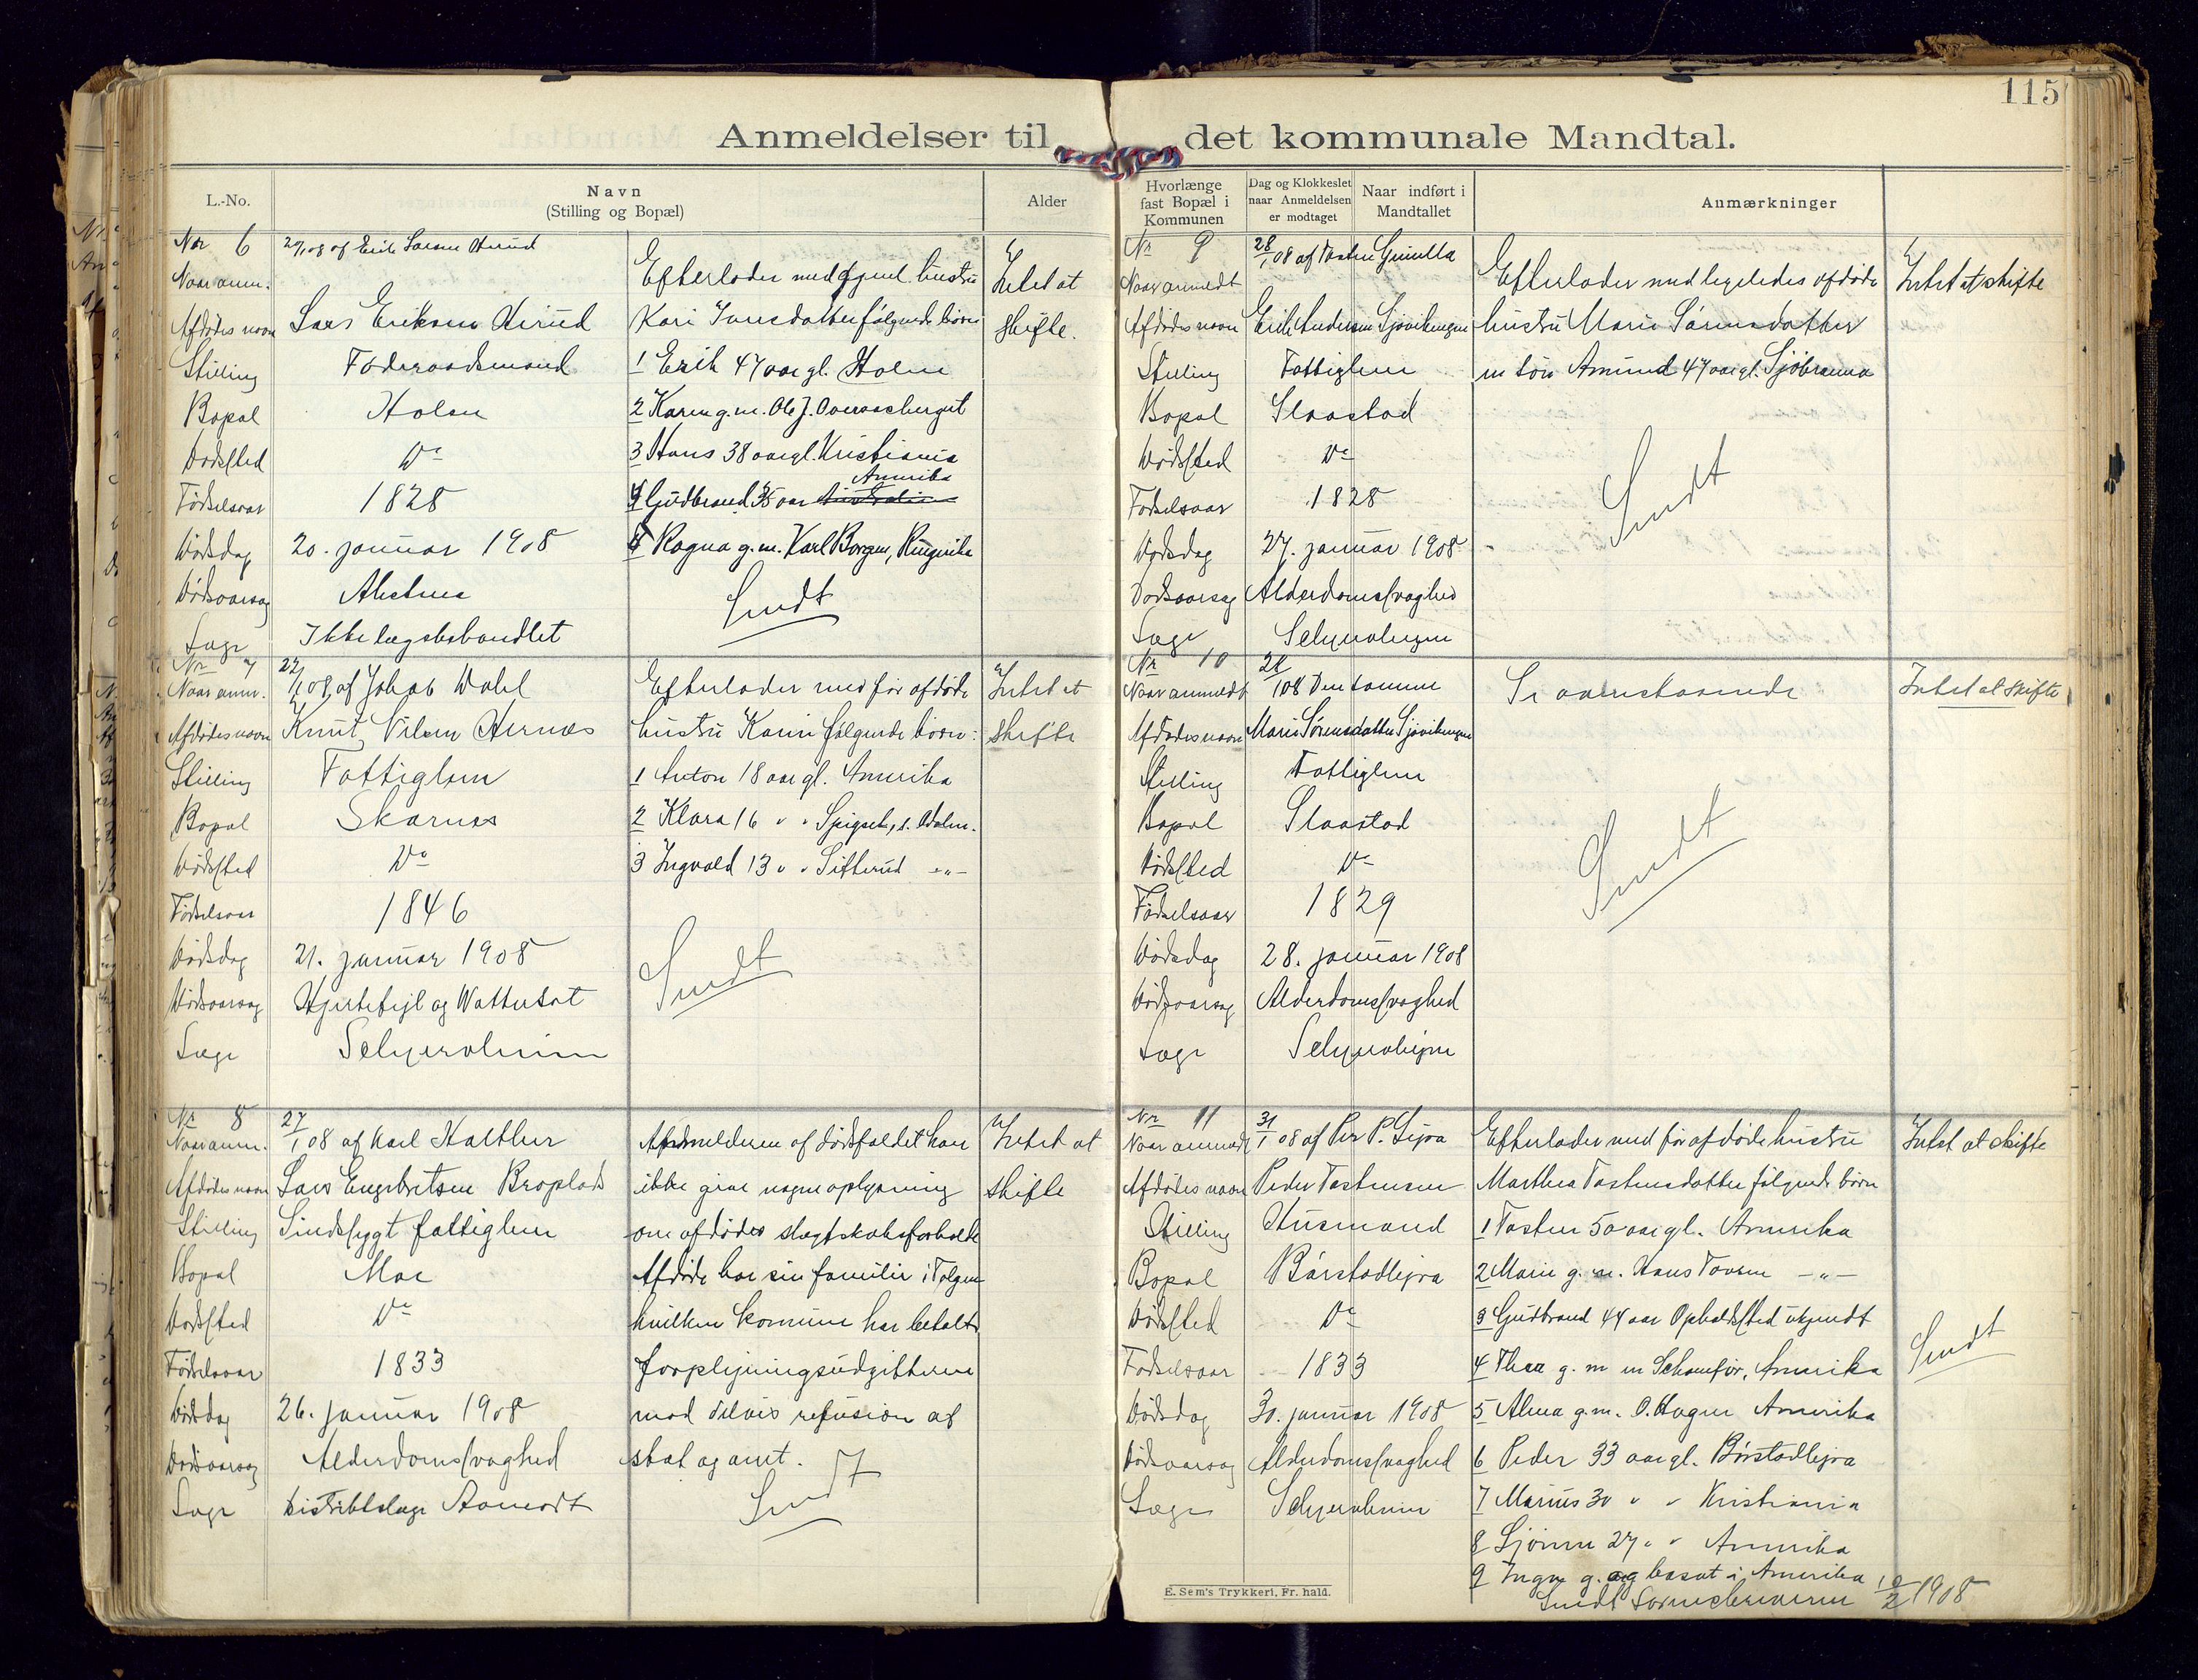 115
Anmeldelser til det kommunale Mandtal.
L.-No.
Navn
(Stilling og Bopæl)
Alder
Nr 6
20/1 08 af Erik Larsen Herud
Naar anm.
Afdødes navn Lars Eriksen Herud
Stilling Føderaadsmand
Bopæl Holen
Dødssted Do
Fødselsaar 1828
Dødsdag 20. januar 1908
Dødsaarsag Alectus
Læge Ikke lægebehandlet
Efterlader med gjenl. hustru
Kari Jensdatter følgende børn
1 Erik 47 aar gl. Holen
2 Karen g.m. Ole J. Overaasberget
3 Hans 38 aar gl. Kristiania
Amerika
4 Gudbrand 35 aar Australien
5 Ragna g.m. Karl Borgen, Ringerike
Sendt
Intet at
skifte.
Nr 7
Naar anm. 22/1 08, af Jakob Dahl
Afdødes navn Knut Nilsen Hernæs
Stilling Fattiglem
Bopæl Skarnæs
Dødssted Do
Fødselsaar 1846
Dødsdag 21. januar 1908
Dødsaarsag Hjertefeil og Wattersot
Læge Scheyerolmsen
Efterlader med før afdøde
hustru Karin følgende børn:
1 Anton 18 aar gl. Amerika
2 Klara 16 " " Spigseth, s. Odalen.
3 Ingvald 13 " " Sitterud -"-
Sendt
Intet at
skifte
Nr 8
Naar anm. 27/1 08 af Karl Holther
Afdødes navn Lars Engebretsen Broplads
Stilling Sindssygt fattiglem
Bopæl Moe
Dødssted Do
Fødselsaar 1833
Dødsdag 26. januar 1908
Dødsaarsag Alderdomssvaghed
Læge Distriktslæge Aamodt
Anmelderen af dødsfaldet kan
ikke give nogen oplysning
om afdødes slægtskabsforholde
Afdøde har sin familie i Tolgen
hvilken kommune har betalt
forpleiningsudgifterne
mod delvis refusion af
stat og amt.
Sendt
Intet at
skifte
Hvorlænge
fast Bopæl i
Kommunen
Dag og Klokkeslet
naar Anmeldelsen
er modtaget
Naar indført i
Mandtallet
Anmærkninger
Nr 9
Naar anmeldt 28/1 08 af Tosten Gunilla
Afdødes navn Erik Andersen Sjøvikengen
Stilling Fattiglem
Bopæl Slaastad
Dødssted Do
Fødselsaar 1828
Dødsdag 27. januar 1908
Dødsaarsag Alderdomssvaghed
Læge
Efterlader med ligeledes afdøde
hustru Marie Sørensdatter
en søn Amund 47 aar gl. Sjøbrenna
Sendt
Intet at skifte
Nr 10
Naar anmeldt 28/1 08 Den samme
Afdødes navn Marie Sørensdatter Sjøvikengen
Stilling Fattiglem
Bopæl Slaastad
Dødssted Do
Fødselsaar 1829
Dødsdag 28. januar 1908
Dødsaarsag Alderdomssvaghed
Læge
Se ovenstaaende
Sendt
Intet at skifte
Nr 11
Naar anmeldt 31/1 08 af Per P. Lejra
Afdødes navn Peder Tostensen
Stilling Husmand
Bopæl Børstadlejra
Dødssted Do
Fødselsaar 1833
Dødsdag 30. januar 1908
Dødsaarsag Alderdomssvaghed
Læge
Efterlader med før afdøde hustru
Marthea Tostensdatter følgende børn
1 Tosten 50 aar gl. Amerika
2 Marie g. m. Hans Tovsen -"-
3 Gudbrand 44 aar Opholdssted ukjendt
4 Thea g. m en Schauføer, Amerika
5 Alma g.m. O. Hagen Amerika
6 Peder 33 aar gl. Børstadlejra
7 Marius 30 " " Kristiania
8 Sjønne 27 " " Amerika
9 Inga g. og bosat i Amerika
Sendt Sorenskriveren 10/2 1908
Intet at skifte
Sendt
E. Sem's Trykkeri, Fr. hald.